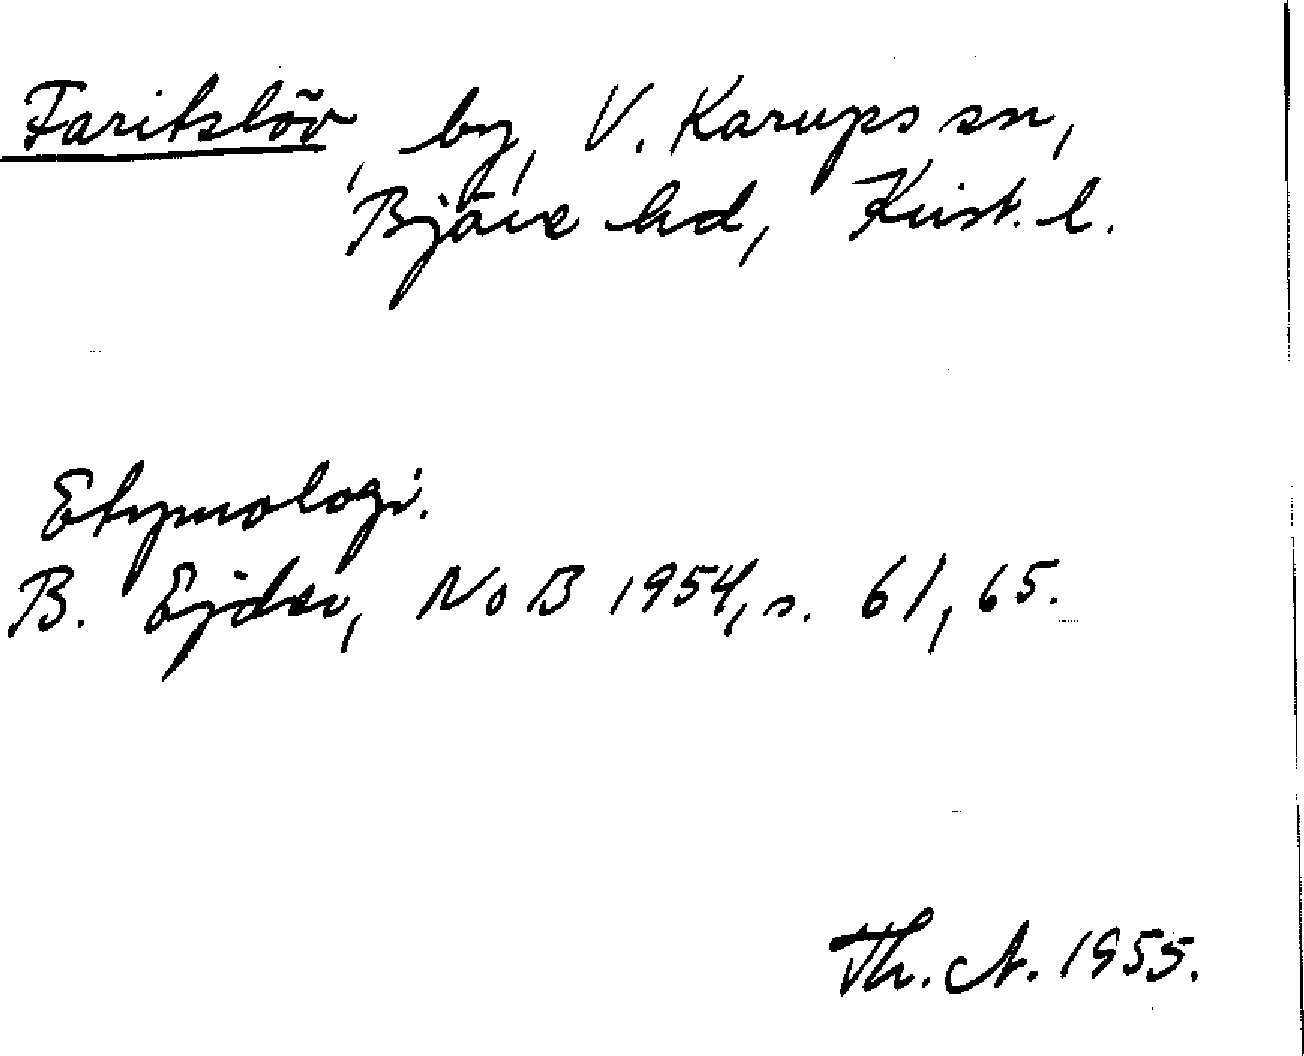 Faritslöv, by, V. Karups sn,
Bjäre hd, Krist. l.
Etymologi.
B. Ejder, NoB 1954, s. 61, 65.
Th. A. 1955.